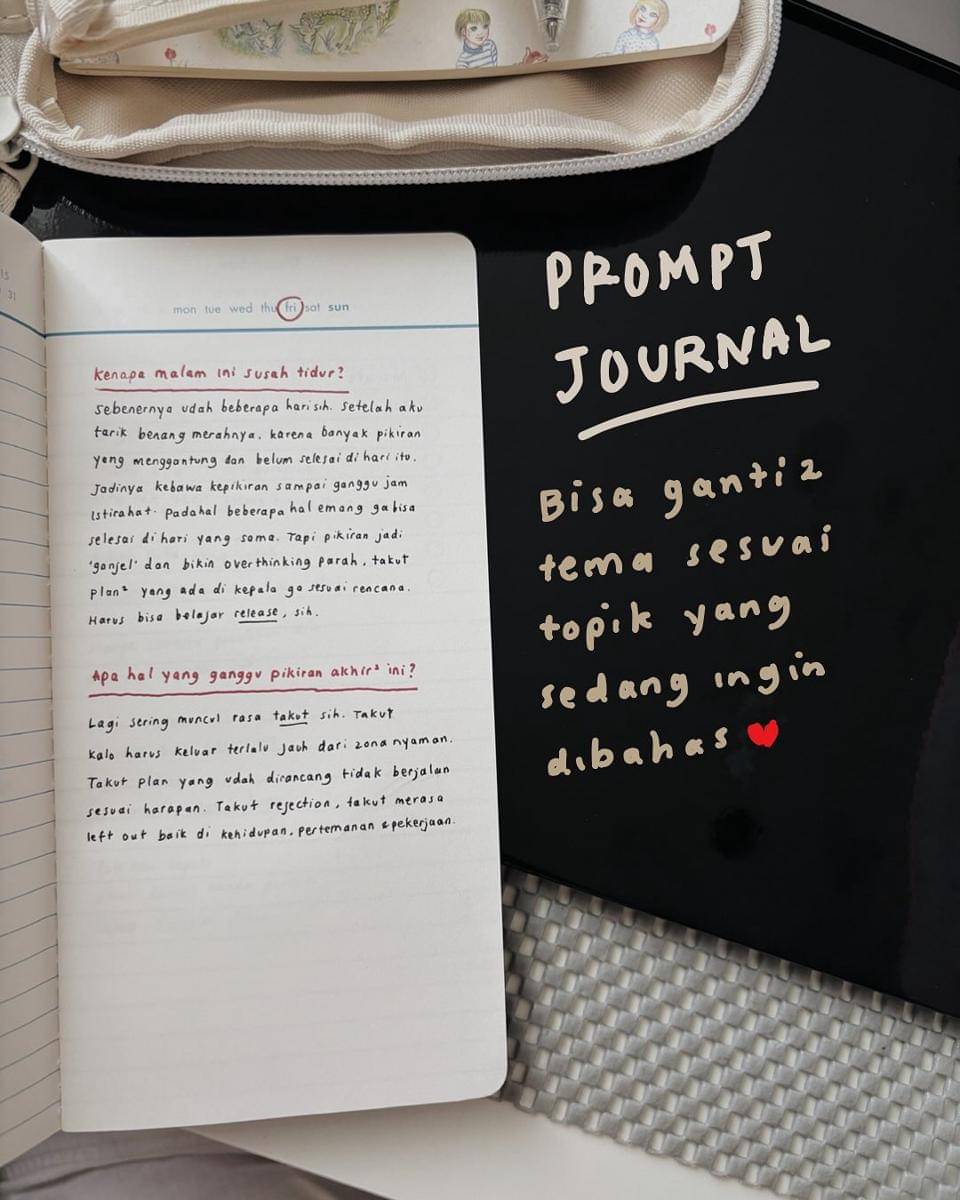 mon tue wed thu fri sat sun
Kenapa malam ini susah tidur?
Sebenernya udah beberapa hari sih. Setelah aku
tarik benang merahnya, karena banyak pikiran
yang menggantung dan belum selesai di hari itu.
Jadinya kebawa kepikiran sampai ganggu jam
istirahat. Padahal beberapa hal emang ga bisa
selesai di hari yang sama. Tapi pikiran jadi
'ganjel' dan bikin overthinking parah, takut
plan² yang ada di kepala ga sesuai rencana.
Harus bisa belajar release, sih.
Apa hal yang ganggu pikiran akhir² ini?
Lagi sering muncul rasa takut sih. Takut
kalo harus keluar terlalu jauh dari zona nyaman.
Takut plan yang udah dirancang tidak berjalan
sesuai harapan. Takut rejection, takut merasa
left out baik di kehidupan, pertemanan & pekerjaan.
PROMPT
JOURNAL
Bisa ganti2
tema sesuai
topik yang
sedang ingin
dibahas